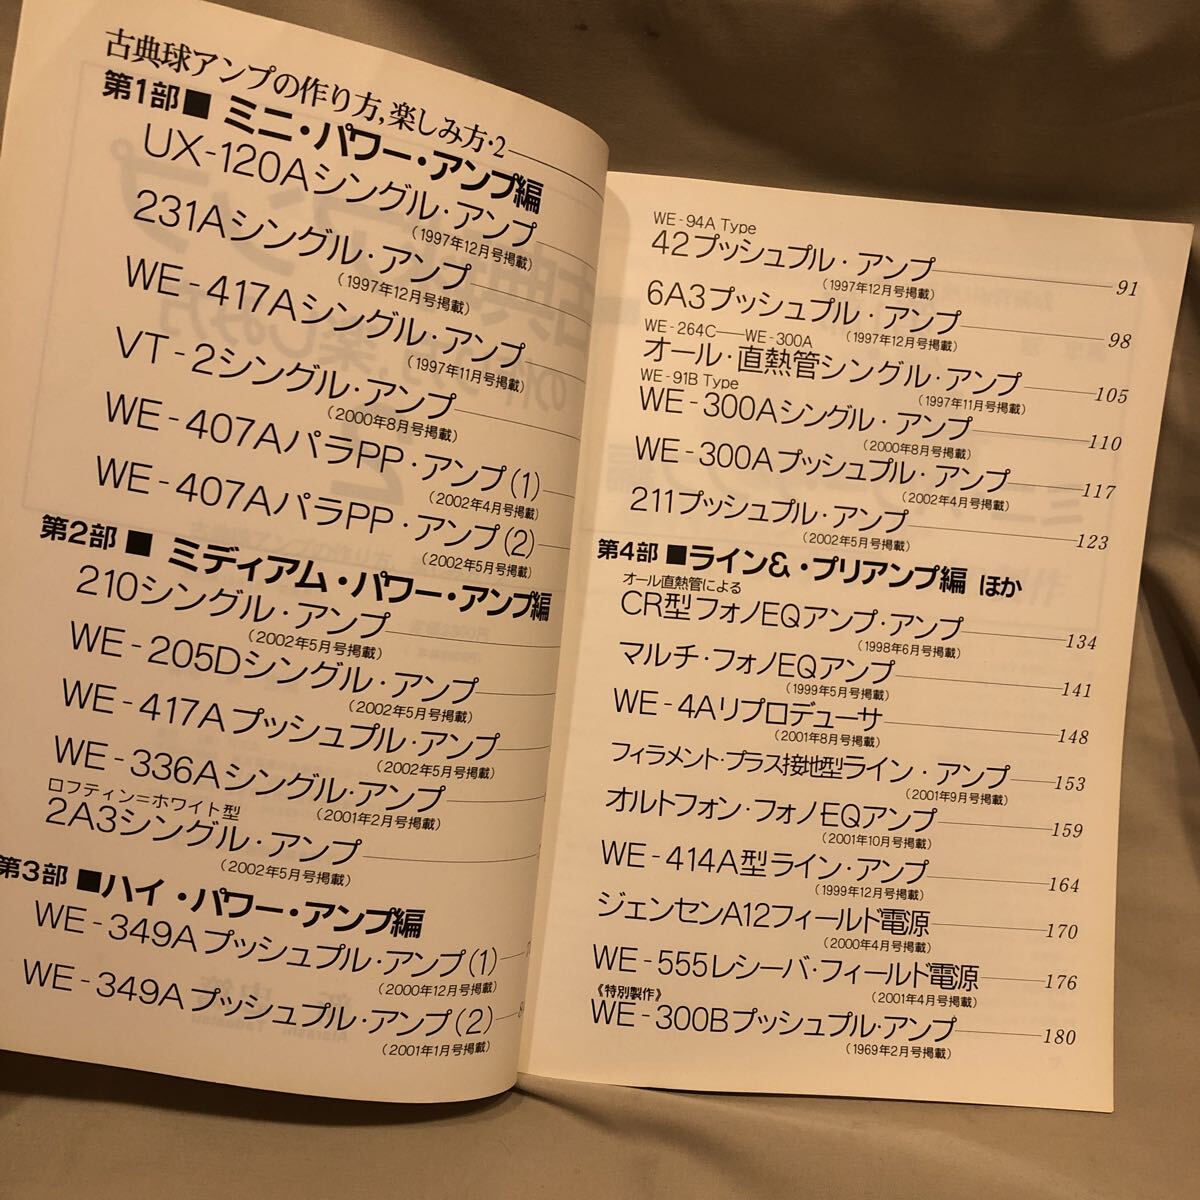 古典球アンプの作り方,楽しみ方・2
第1部■ ミニ・パワー・アンプ編
UX-120Aシングル・アンプ
(1997年12月号掲載)
231Aシングル・アンプ
(1997年12月号掲載)
WE-417Aシングル・アンプ
(1997年11月号掲載)
VT-2シングル・アンプ
(2000年8月号掲載)
WE-407AパラPP・アンプ(1)
(2002年4月号掲載)
WE-407AパラPP・アンプ(2)
(2002年5月号掲載)
第2部 ■ ミディアム・パワー・アンプ編
210シングル・アンプ
(2002年5月号掲載)
WE-205Dシングル・アンプ
(2002年5月号掲載)
WE-417Aプッシュプル・アンプ
(2002年5月号掲載)
WE-336Aシングル・アンプ
(2001年2月号掲載)
ロフティン=ホワイト型
2A3シングル・アンプ
(2002年5月号掲載)
第3部 ■ハイ・パワー・アンプ編
WE-349Aプッシュプル・アンプ(1)
(2000年12月号掲載)
WE-349Aプッシュプル・アンプ(2)
(2001年1月号掲載)
WE-94A Type
42プッシュプル・アンプ 91
(1997年12月号掲載)
6A3プッシュプル・アンプ 98
(1997年12月号掲載)
WE-264C—WE-300A
オール・直熱管シングル・アンプ 105
(1997年11月号掲載)
WE-91B Type
WE-300Aシングル・アンプ 110
(2000年8月号掲載)
WE-300Aプッシュプル・アンプ 117
(2002年4月号掲載)
211プッシュプル・アンプ 123
(2002年5月号掲載)
第4部 ■ライン&・プリアンプ編 ほか
オール直熱管による
CR型フォノEQアンプ・アンプ 134
(1998年6月号掲載)
マルチ・フォノEQアンプ 141
(1999年5月号掲載)
WE-4Aリプロデューサ 148
(2001年8月号掲載)
フィラメント・プラス接地型ライン・アンプ 153
(2001年9月号掲載)
オルトフォン・フォノEQアンプ 159
(2001年10月号掲載)
WE-414A型ライン・アンプ 164
(1999年12月号掲載)
ジェンセンA12フィールド電源 170
(2000年4月号掲載)
WE-555レシーバ・フィールド電源 176
(2001年4月号掲載)
《特別製作》
WE-300Bプッシュプル・アンプ 180
(1969年2月号掲載)